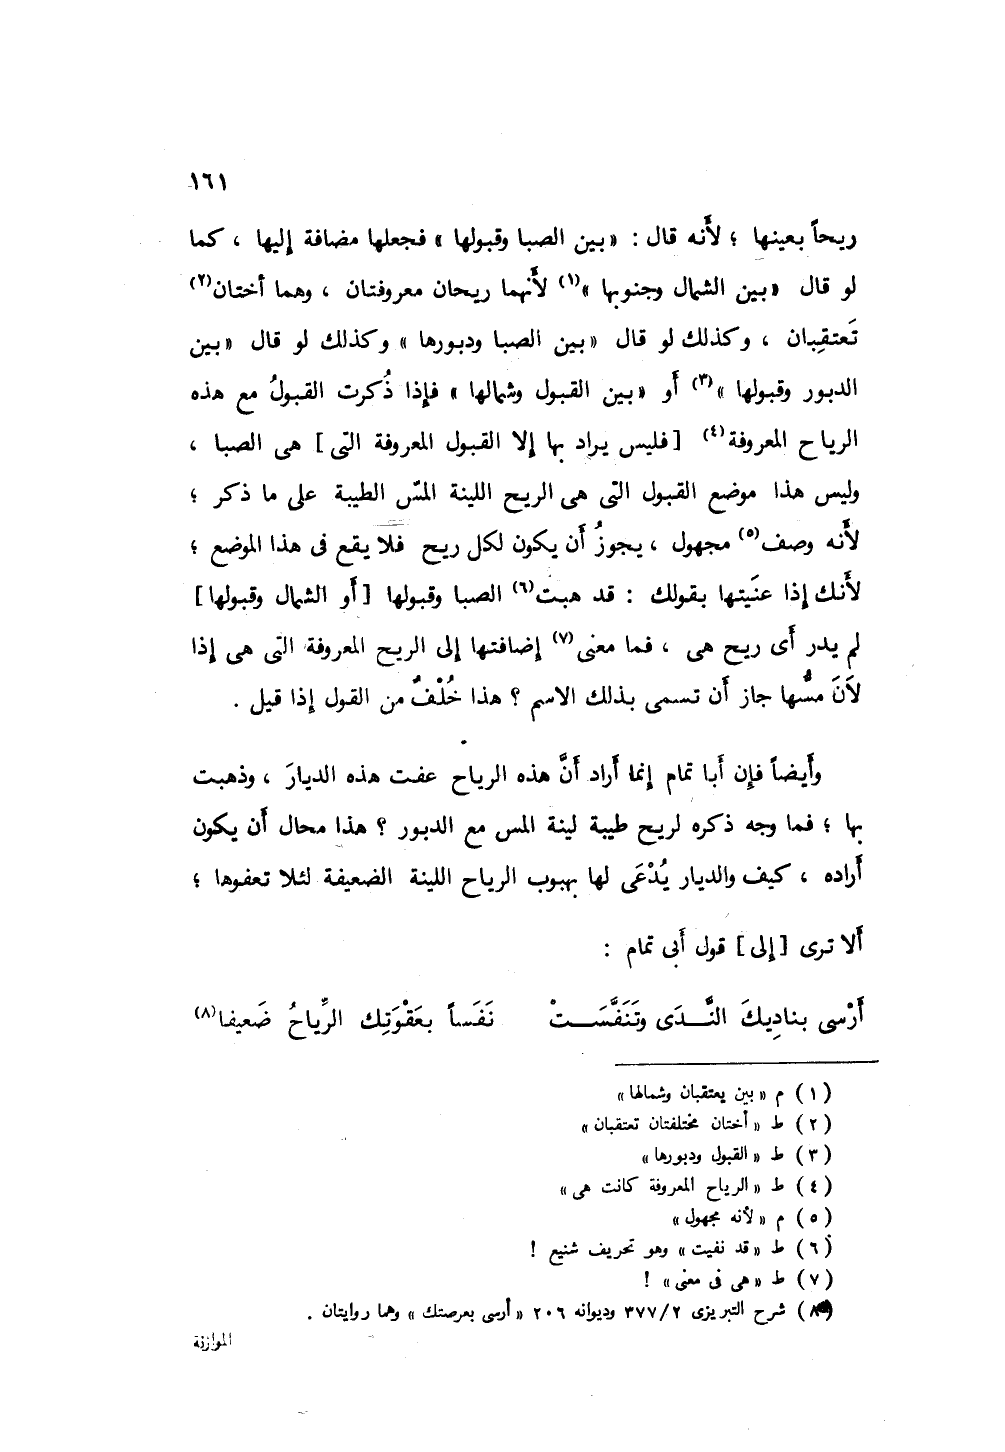 ١٦١
ريحاً بعينها ؛ لأَنه قال : « بين الصبا وقبولها » فجعلها مضافة إليها ، كما
لو قال « بين الشمال وجنوبها »(١) لأَنهما ريحان معروفتان ، وهما أختان(٢)
تَعتقِبان ، وكذلك لو قال « بين الصبا ودبورها » وكذلك لو قال « بين
الدبور وقبولها »(٣) أَو « بين القبول وشمالها » فإِذا ذُكرت القبولُ مع هذه
الرياح المعروفة(٤) [ فليس يراد بها إلا القبول المعروفة التى ] هى الصبا ،
وليس هذا موضع القبول التى هى الريح اللينة المسّ الطيبة على ما ذكر ؛
لأَنه وصف(٥) مجهول ، يجوزُ أَن يكون لكل ريح فلا يقع فى هذا الموضع ؛
لأَنك إذا عنَيتها بقولك : قد هبت(٦) الصبا وقبولها [ أَو الشمال وقبولها ]
لم يدر أَى ريح هى ، فما معنى(٧) إضافتها إلى الريح المعروفة التى هى إذا
لاَنَ مسُّها جاز أَن تسمى بذلك الاسم ؟ هذا خُلْفٌ من القول إذا قيل .
وأَيضاً فإِن أَبا تمام إنما أَراد أَنَّ هذه الرياح عفت هذه الديارَ ، وذهبت
بها ؛ فما وجه ذكره لريح طيبة لينة المس مع الدبور ؟ هذا محال أَن يكون
أَراده ، كيف والديار يُدْعَى لها بهبوب الرياح اللينة الضعيفة لئلا تعفوها ؛
أَلا ترى [ إلى ] قول أَبى تمام :
أَرْسى بنادِيكَ النَّـــدَى وتَنَفَّسَـــتْ نَفَساً بعَقْوَتِك الرِّياحُ ضَعيفا(٨)
(١) م « بين يعتقبان وشمالها »
(٢) ط « أختان مختلفتان تعتقبان »
(٣) ط « القبول ودبورها »
(٤) ط « الرياح المعروفة كانت هى »
(٥) م « لأنه مجهول »
(٦) ط « قد نفيت » وهو تحريف شنيع !
(٧) ط « هى فى معنى » !
(٨) شرح التبريزى ٣٧٧/٢ وديوانه ٢٠٦ « أرسى بعرصتك » وهما روايتان .
الموازنة